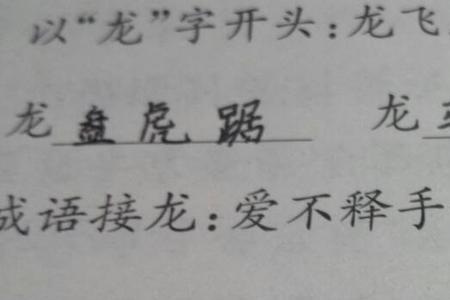 以“龙”字开头：龙飞
龙盘虎踞 龙
成语接龙：爱不释手